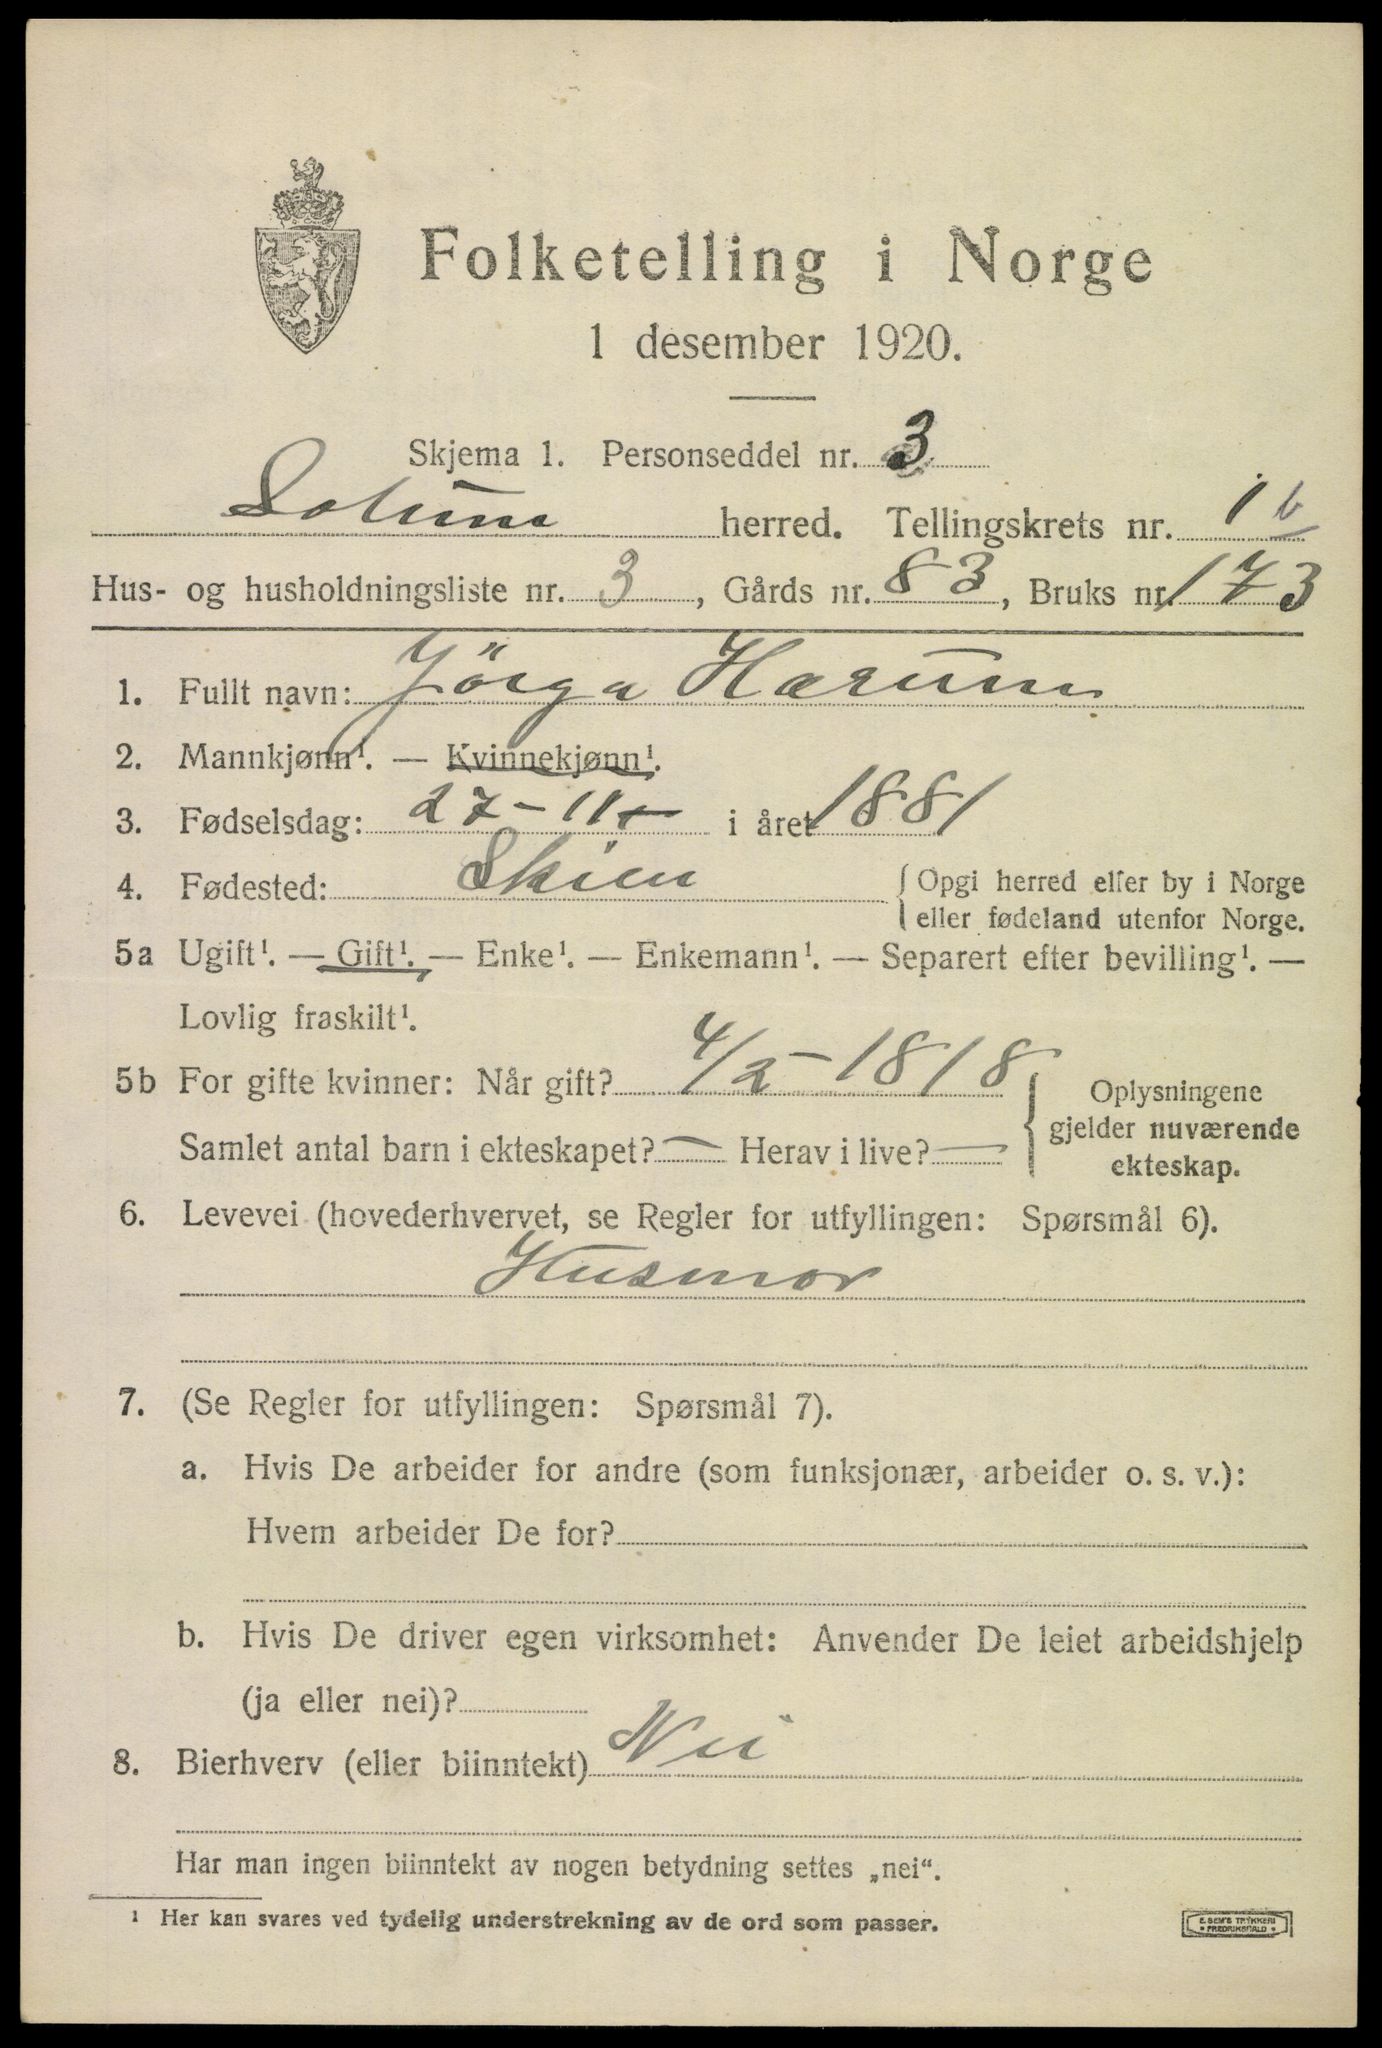 Folketelling i Norge
1 desember 1920.
Skjema 1. Personseddel nr. 3
Solum herred. Tellingskrets nr. 1 b
Hus- og husholdningsliste nr. 3, Gårds nr. 83, Bruks nr. 173
1. Fullt navn: Jörga Harum
2. Mannkjønn¹. — Kvinnekjønn¹.
3. Fødselsdag: 27-11- i året 1881
4. Fødested: Skien { Opgi herred eller by i Norge
eller fødeland utenfor Norge.
5a Ugift¹. — Gift¹. — Enke¹. — Enkemann¹. — Separert efter bevilling¹. —
Lovlig fraskilt¹.
5b For gifte kvinner: Når gift? 4/2-1818
Samlet antal barn i ekteskapet? — Herav i live? —
Oplysningene
gjelder nuværende
ekteskap.
6. Levevei (hovederhvervet, se Regler for utfyllingen: Spørsmål 6).
Husmor
7. (Se Regler for utfyllingen: Spørsmål 7).
a. Hvis De arbeider for andre (som funksjonær, arbeider o. s. v.):
Hvem arbeider De for?
b. Hvis De driver egen virksomhet: Anvender De leiet arbeidshjelp
(ja eller nei)?
8. Bierhverv (eller biinntekt) Nei
Har man ingen biinntekt av nogen betydning settes „nei“.
¹ Her kan svares ved tydelig understrekning av de ord som passer.
E. SEM'S TRYKKERI
FREDRIKSHALD